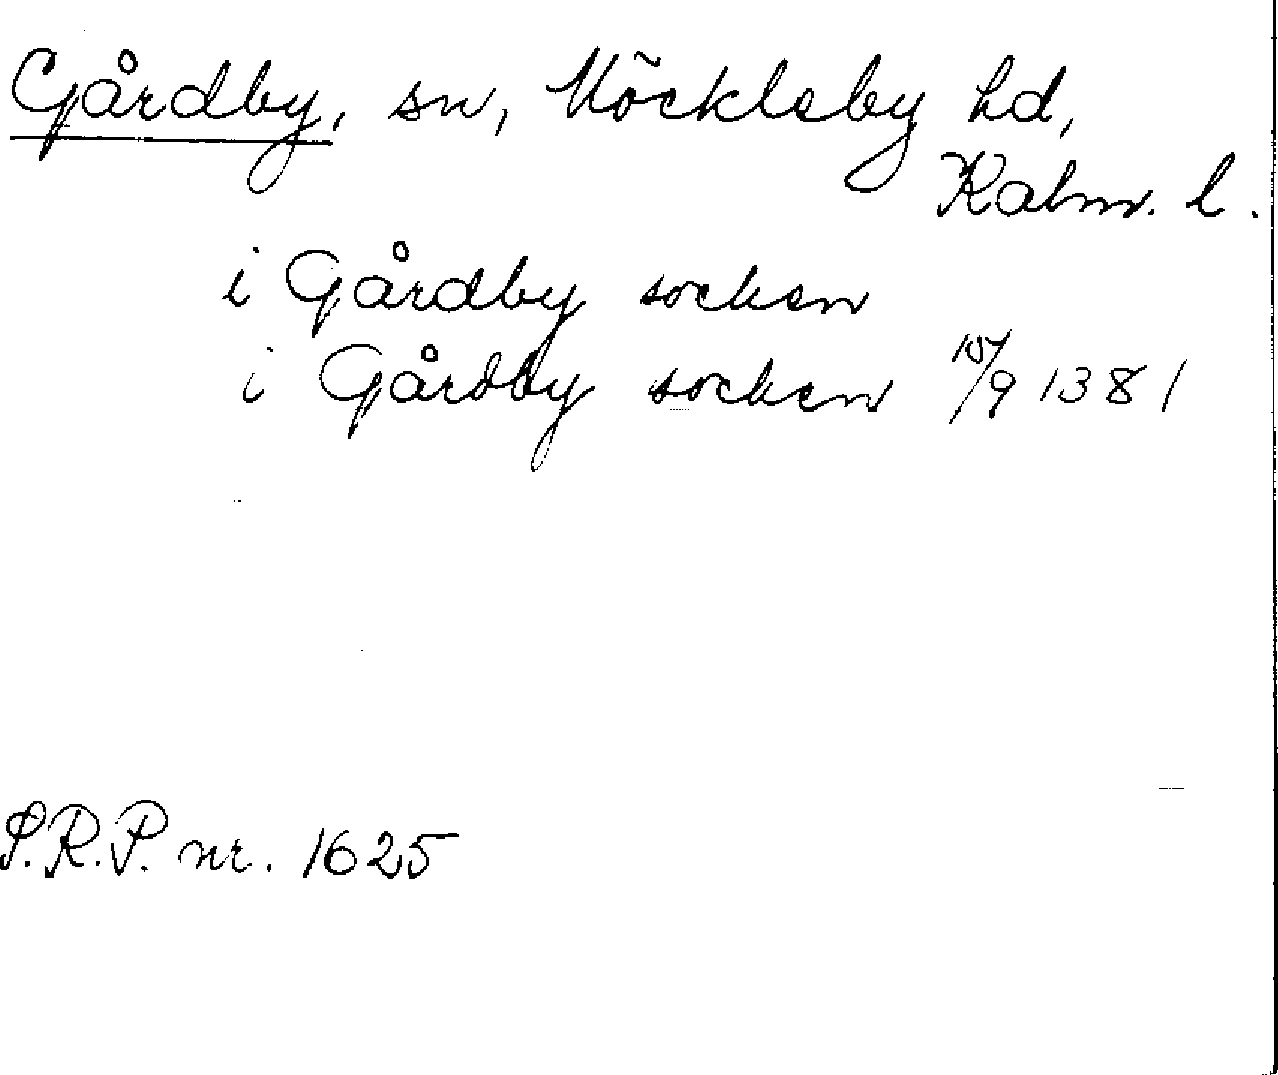 Gårdby, sn, Möckleby hd,
Kalm. l.
i Gårdby socken
i Gårdby socken 10/9 1381
S.R.P. nr. 1625